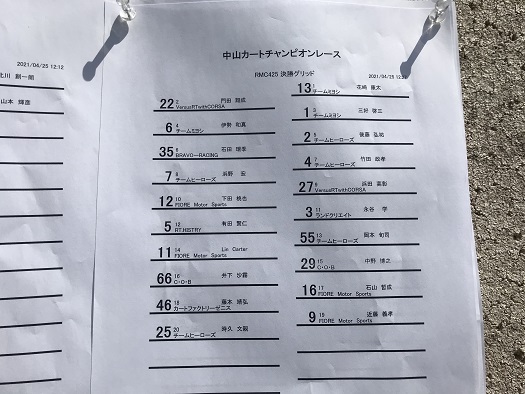 2021/04/25 12:12
中山カートチャンピオンレース
RMC425 決勝グリッド
2021/04/25
13 1 花嶋 重太
チームミヨシ
22 2 門田 翔成
VersusRTwithCORSA
1 3 三好 啓三
チームミヨシ
6 4 伊勢 和真
チームミヨシ
2 5 後藤 弘祐
チームヒーローズ
35 6 石田 瑞季
BRAVO-RACING
4 7 竹田 政孝
チームヒーローズ
7 8 浜野 宏
チームヒーローズ
27 9 浜田 嘉彰
VersusRTwithCORSA
12 10 下田 桃也
FIORE Motor Sports
3 11 永谷 学
ランドクリエイト
5 12 有田 賢仁
RT.HISTRY
55 13 岡本 旬司
チームヒーローズ
11 14 Lin Carter
FIORE Motor Sports
29 15 中野 博之
C・O・B
66 16 井下 沙霧
C・O・B
16 17 石山 哲成
FIORE Motor Sports
46 18 藤本 靖弘
カートファクトリーゼニス
9 19 近藤 義孝
FIORE Motor Sports
25 20 時久 文毅
チームヒーローズ